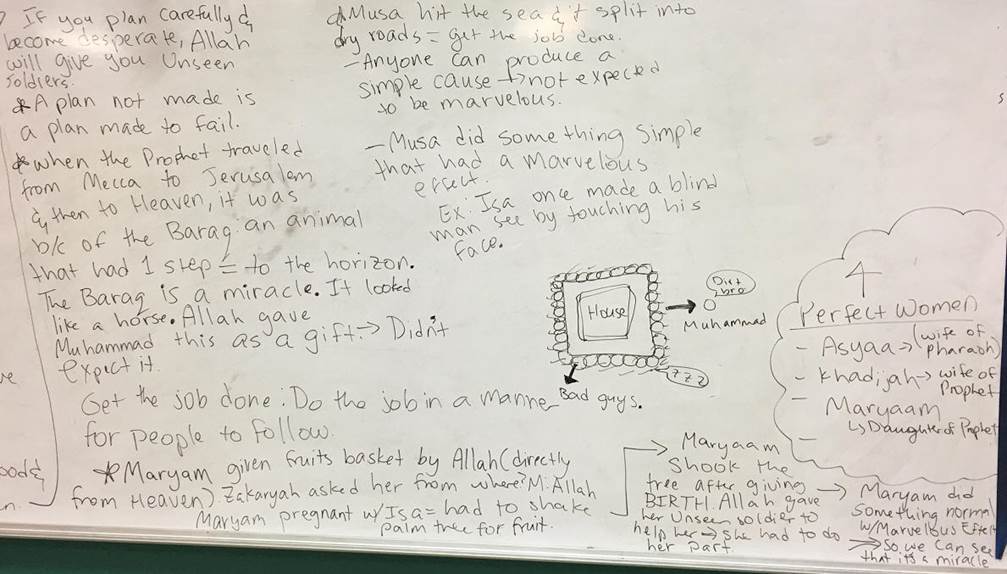 If you plan carefully &
become desperate, Allah
will give you Unseen
soldiers.
* A plan not made is
a plan made to fail.
* when the Prophet traveled
from Mecca to Jerusalem
& then to Heaven, it was
b/c of the Baraq: an animal
that had 1 step = to the horizon.
The Baraq is a miracle. It looked
like a horse. Allah gave
Muhammad this as a gift. → Didn't
expect it.
Get the job done. Do the job in a manner
for people to follow.
* Musa hit the sea & it split into
dry roads = get the job done.
- Anyone can produce a
simple cause → not expected
to be marvelous.
- Musa did something simple
that had a marvelous
effect.
Ex: Isa once made a blind
man see by touching his
face.
House
Dirt
bro
Muhammad
zzz
Bad guys.
4
Perfect Women
- Asyaa → (wife of
pharaoh)
- Khadijah → wife of
Prophet
- Maryaam
↳ Daughter of Prophet
-
* Maryam given fruits basket by Allah (directly
from Heaven). Zakaryah asked her from where? M: Allah
Maryam pregnant w/ Isa = had to shake
palm tree for fruit.
→ Maryaam
shook the
tree after giving
BIRTH. Allah gave
her Unseen soldier to
help her → she had to do
her part.
→ Maryam did
something normal
w/ Marvelous Effect
→ So we can see
that its a miracle